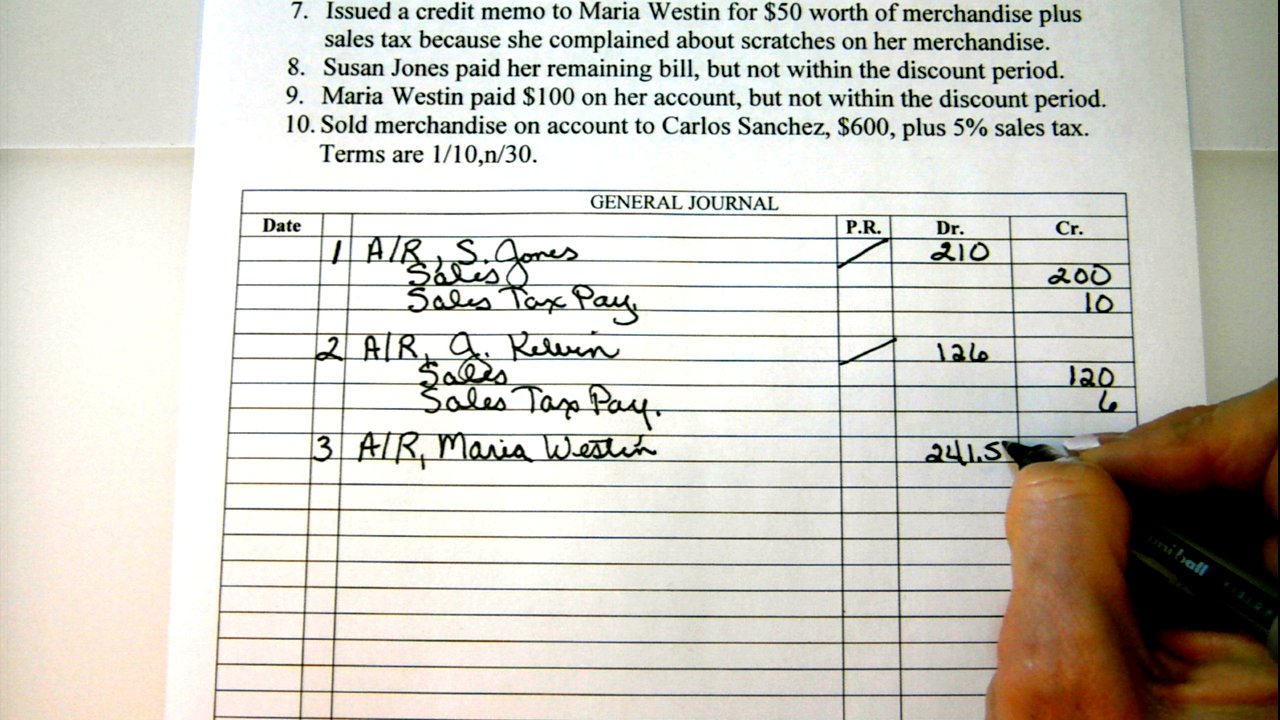 7. Issued a credit memo to Maria Westin for $50 worth of merchandise plus
sales tax because she complained about scratches on her merchandise.
8. Susan Jones paid her remaining bill, but not within the discount period.
9. Maria Westin paid $100 on her account, but not within the discount period.
10. Sold merchandise on account to Carlos Sanchez, $600, plus 5% sales tax.
Terms are 1/10,n/30.
GENERAL JOURNAL
Date P.R. Dr. Cr.
1 A/R, S. Jones 210
Sales 200
Sales Tax Pay. 10
2 A/R, J. Kelvin 126
Sales 120
Sales Tax Pay. 6
3 A/R, Maria Westin 241.5
uni-ball